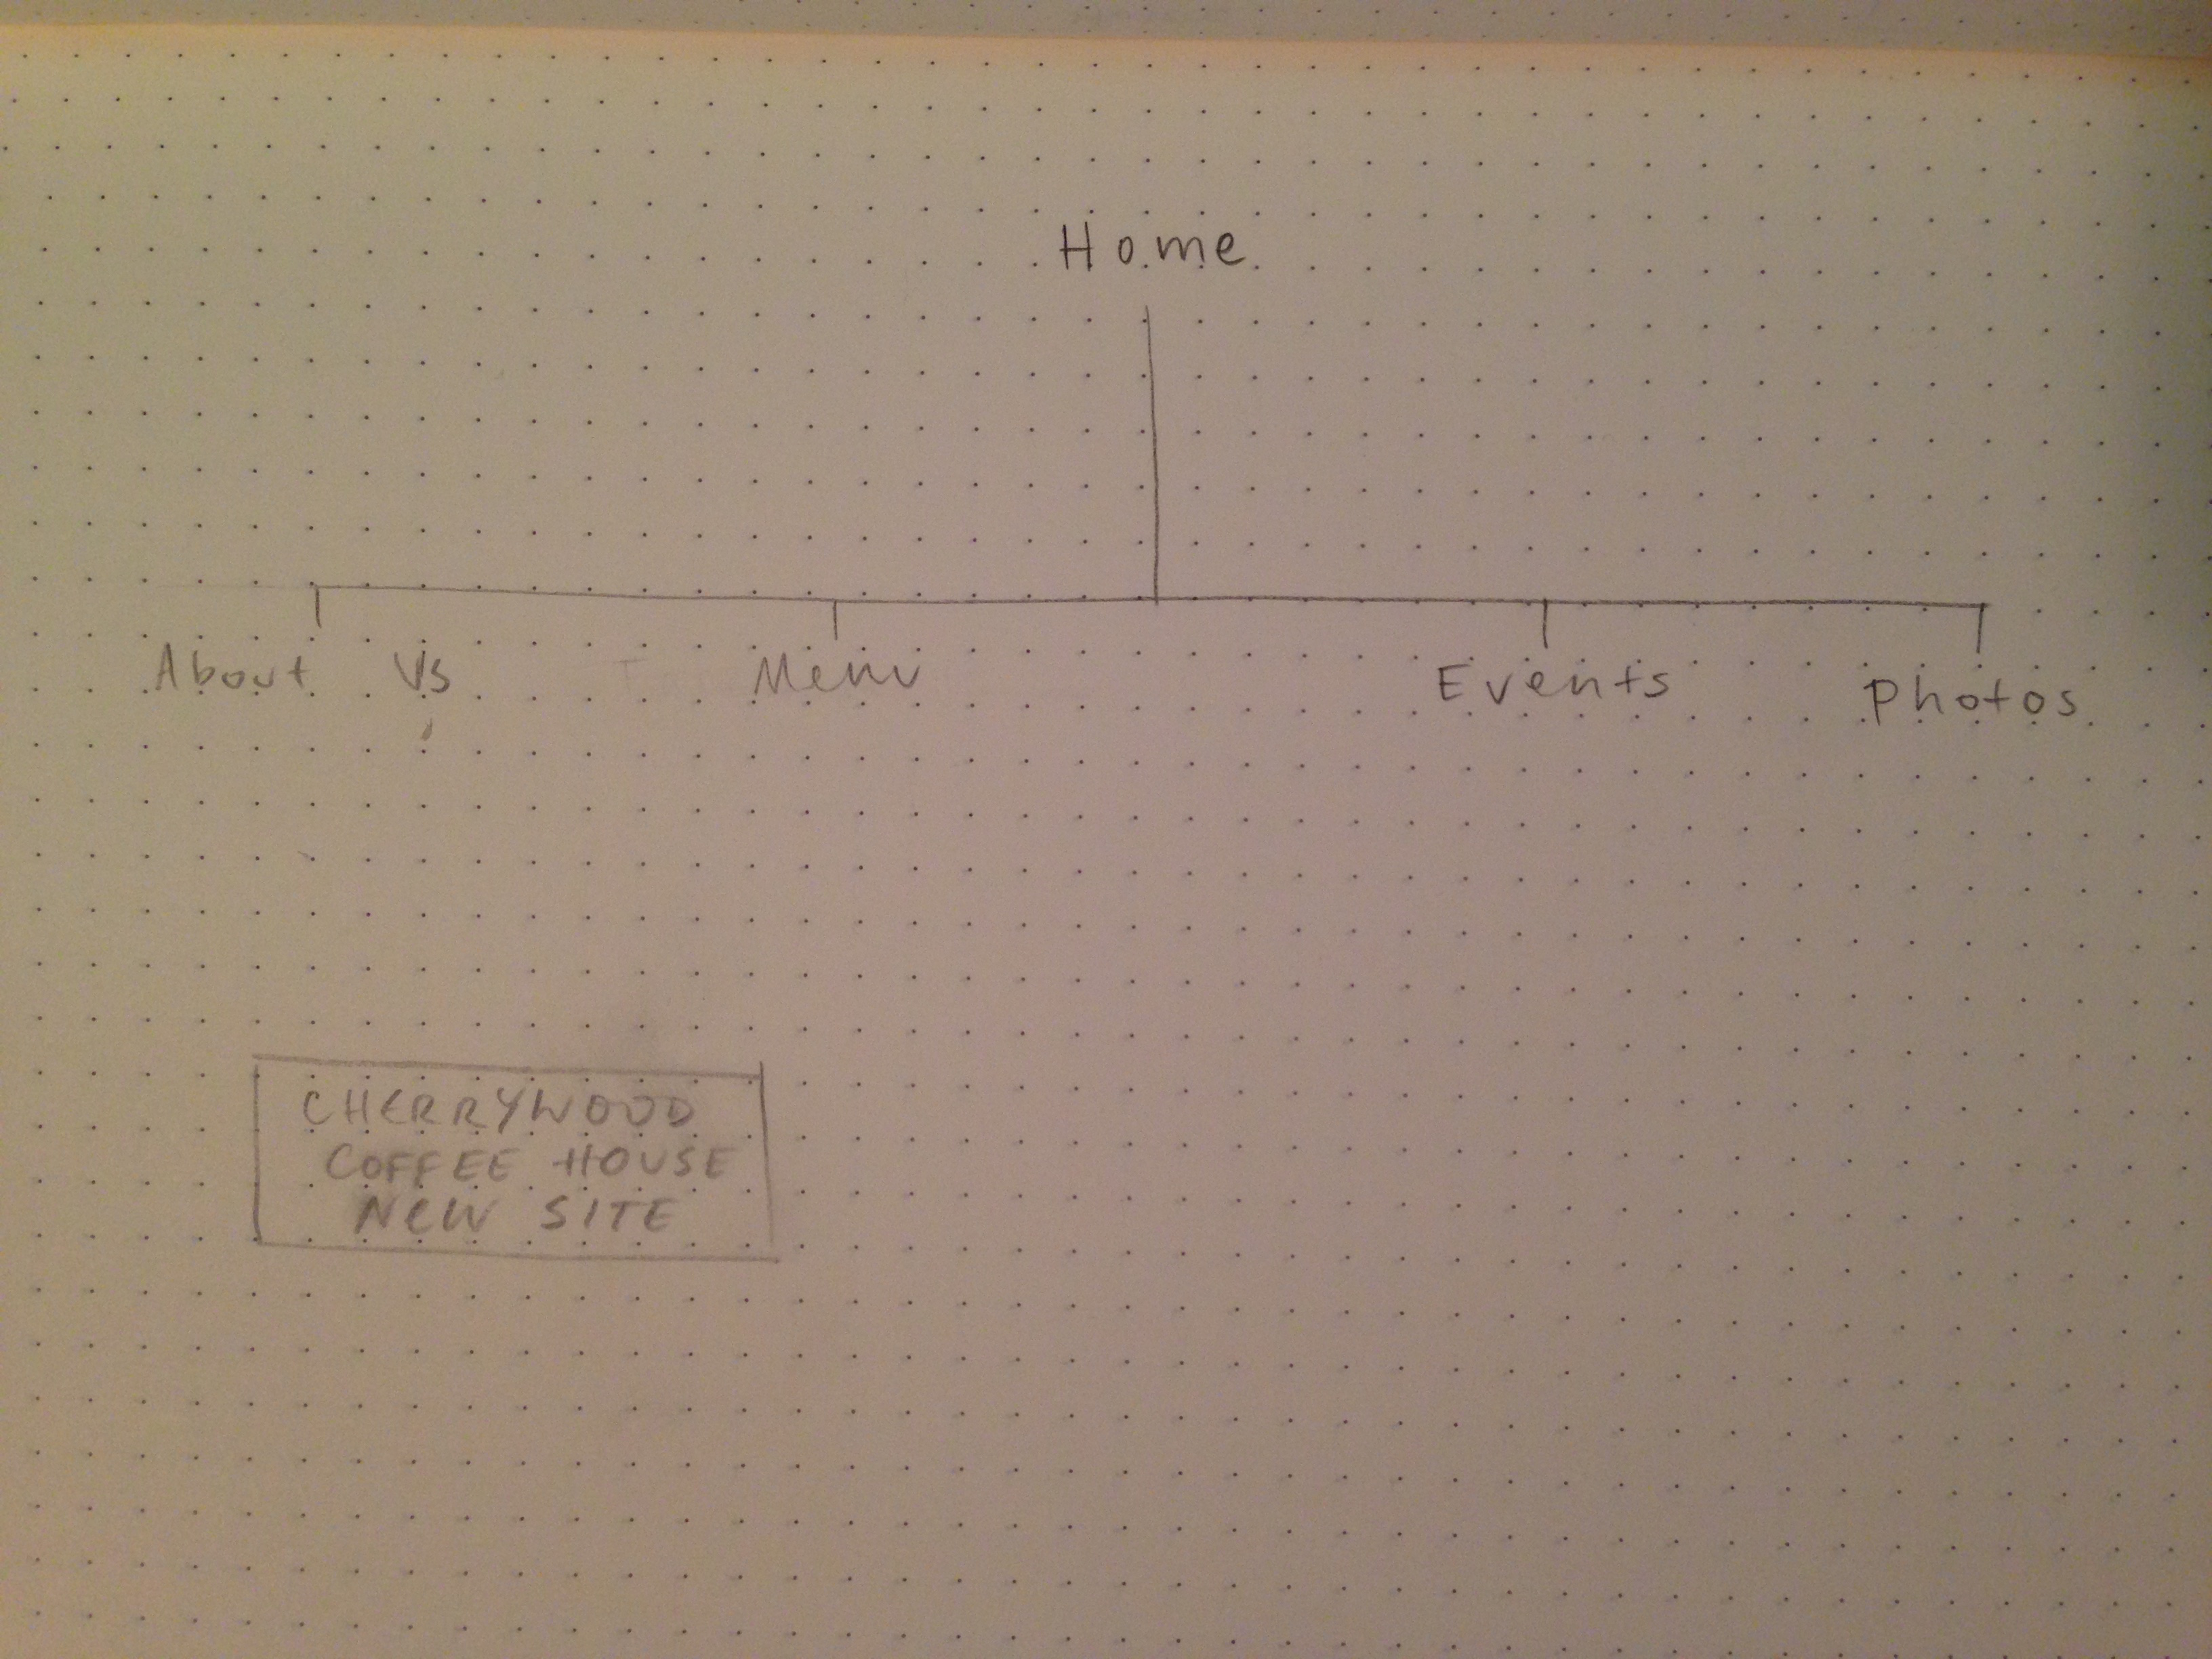 Home
About Us
Menu
Events
Photos
CHERRYWOOD
COFFEE HOUSE
NEW SITE